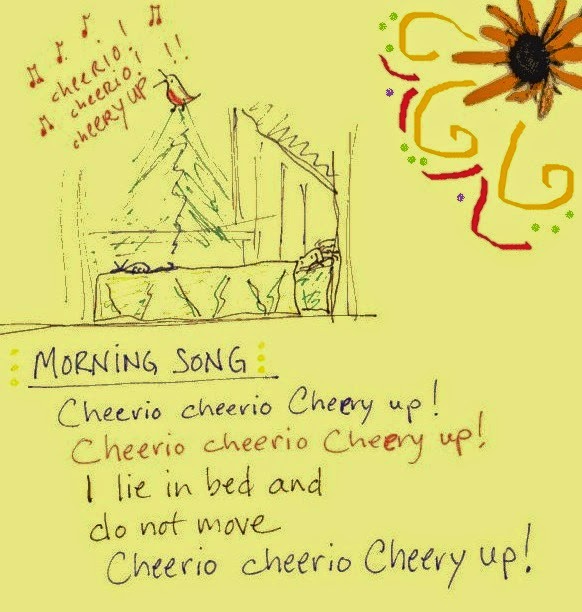 cheerio!
cheerio!
cheery up!!
MORNING SONG
Cheerio cheerio Cheery up!
Cheerio cheerio Cheery up!
I lie in bed and
do not move
Cheerio cheerio Cheery up!